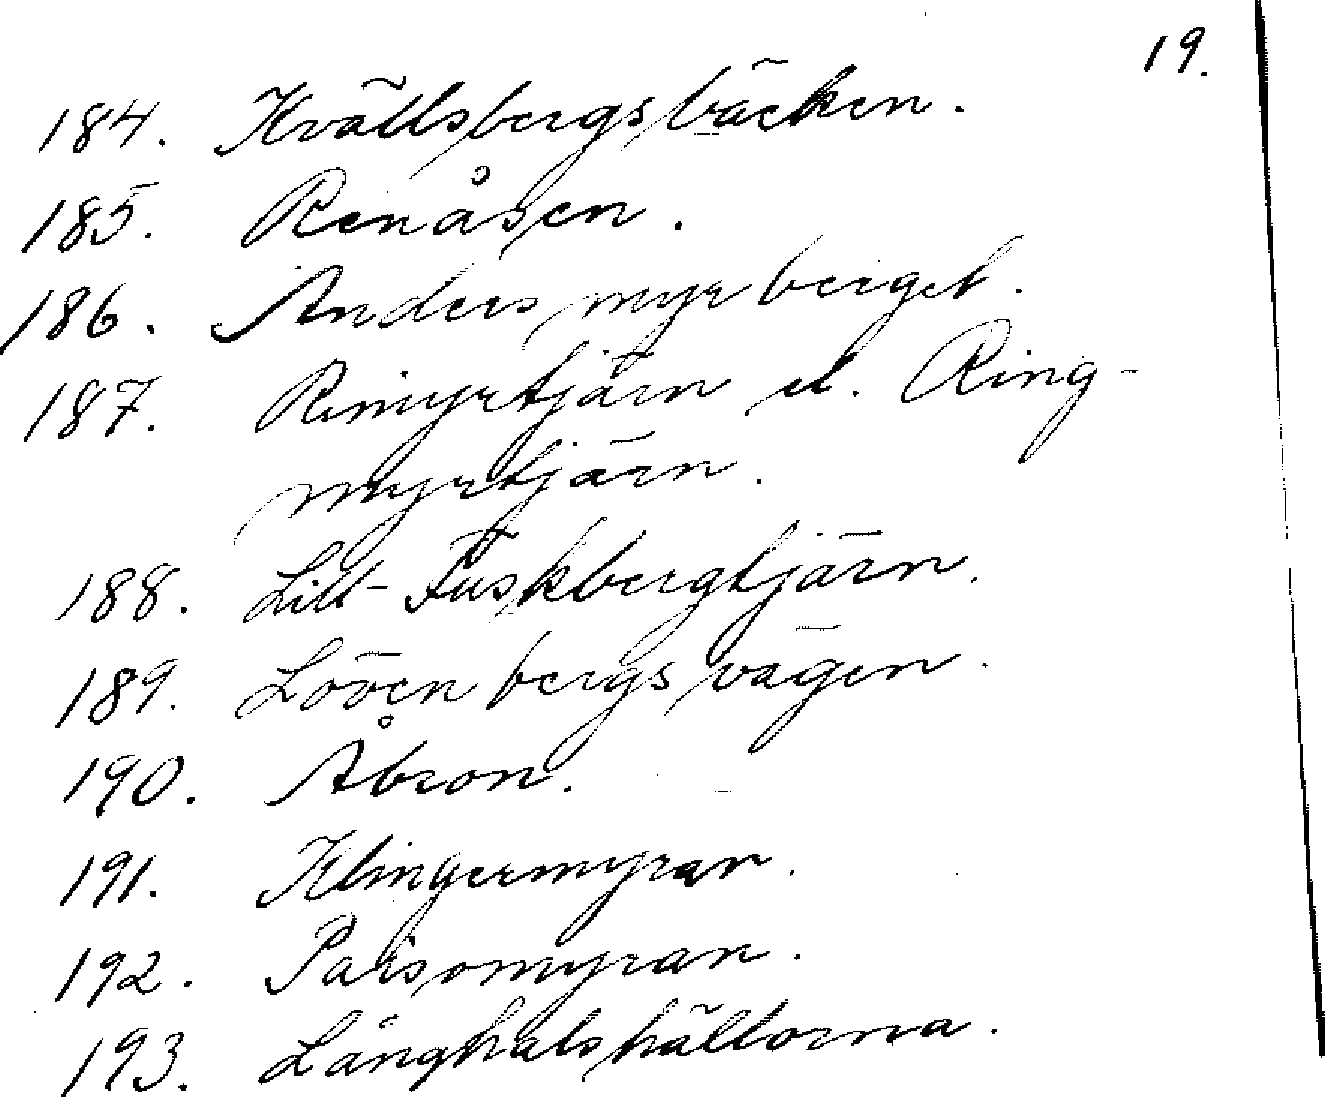 19.
184. Kvällsbergsbäcken.
185. Renåsen.
186. Andersmyrberget.
187. Rimyrtjärn el. Ring-
myrtjärn.
188. Lill-Fuskbergtjärn.
189. Lövenbergsvägen.
190. Åbron.
191. Klingermyran.
192. Parsomyran.
193. Långhalshällorna.